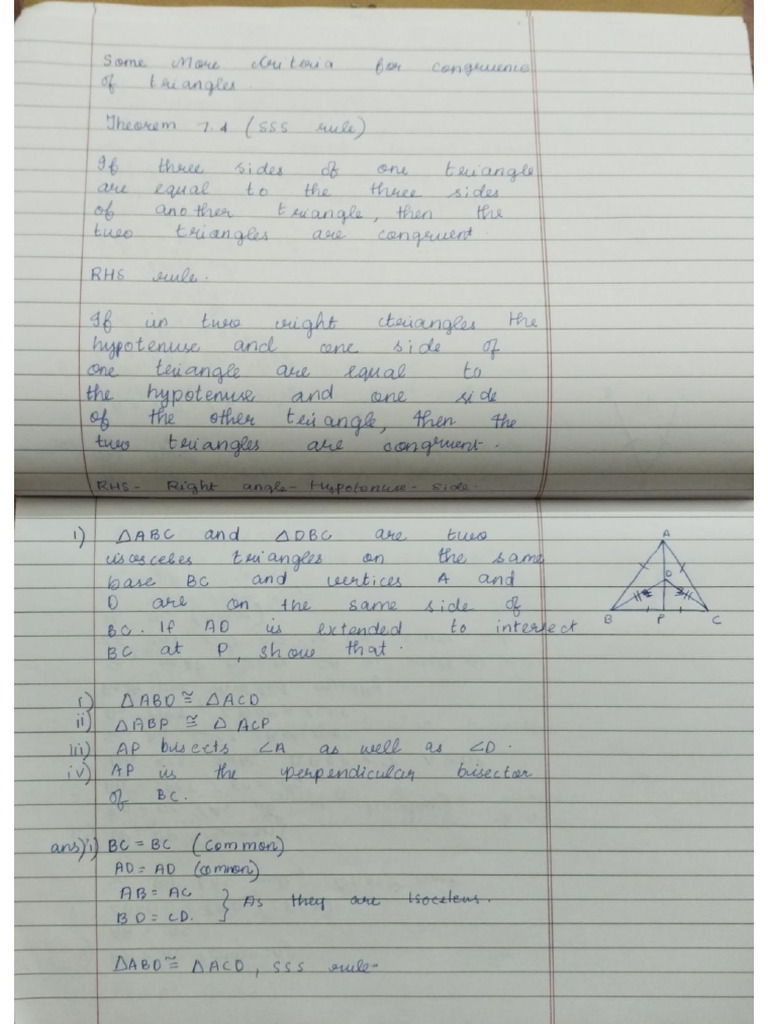 Some More Criteria for congruence
of triangles.
Theorem 7.4 (SSS rule)
If three sides of one triangle
are equal to the three sides
of another triangle, then the
two triangles are congruent.
RHS rule.
If in two right triangles the
hypotenuse and one side of
one triangle are equal to
the hypotenuse and one side
of the other triangle, then the
two triangles are congruent.
RHS- Right angle- Hypotenuse- side.
1) △ABC and △DBC are two
isosceles triangles on the same
base BC and vertices A and
D are on the same side of
BC. If AD is extended to intersect
BC at P, show that.
A
D
B P C
i) △ABD ≅ △ACD
ii) △ABP ≅ △ACP
iii) AP bisects ∠A as well as ∠D.
iv) AP is the perpendicular bisector
of BC.
ans) i) BC = BC (common)
AD = AD (common)
AB = AC
BD = CD. } As they are Isoceleus.
△ABD ≅ △ACD, SSS rule-